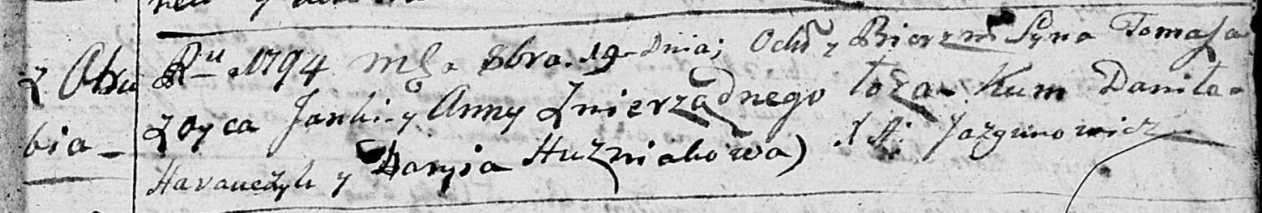 z Otru
bia -
Rᵘ 1794 mca 8bra. 19 Dnia; Ochr z Bierzm Syna Tomasa
z oyca Janki y Anny z nierządnego łoża - Kum Daniła
Havauczyk y Maryia Huzniakowa) X A: Jazgunowicz